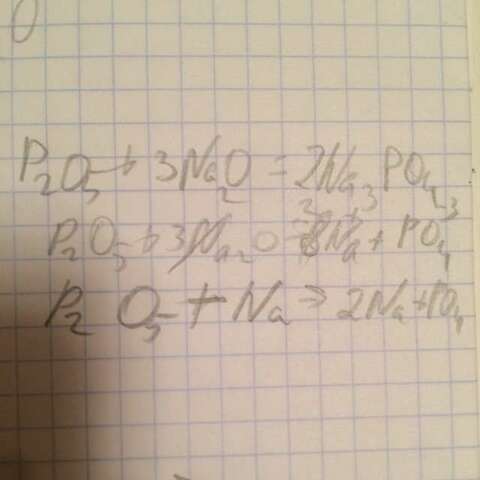 P₂O₅ + 3Na₂O = 2Na₃PO₄
P₂O₅ + 3Na₂O = Na⁺ + PO₄
P₂O₅ + Na => 2Na + PO₄